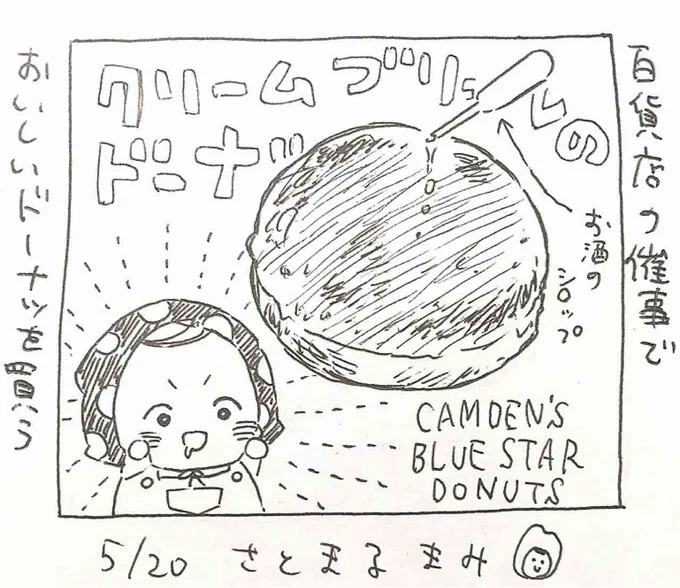 百貨店の催事で
おいしいドーナツを買う
クリームブリュレの
ドーナツ
お酒の
シロップ
CAMDEN'S
BLUE STAR
DONUTS
5/20 さとまるまみ